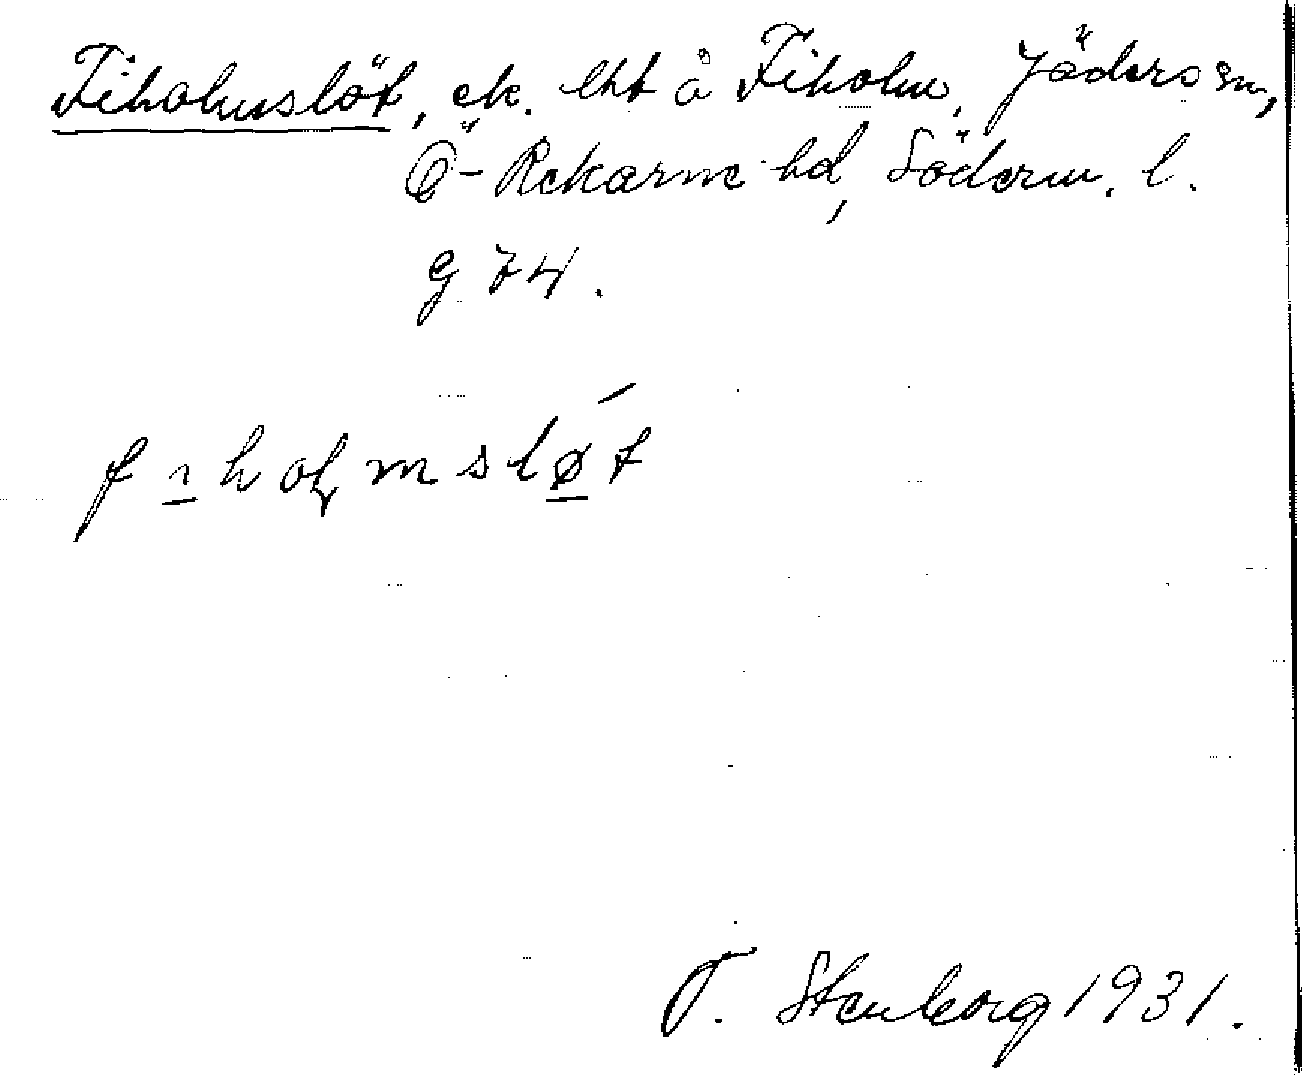 Fiholmslöt, ek. lht å Fiholm, Jäders sn,
Ö-Rekarne hd, Söderm. l.
g 74.
fıholmsløt
T. Stenborg 1931.